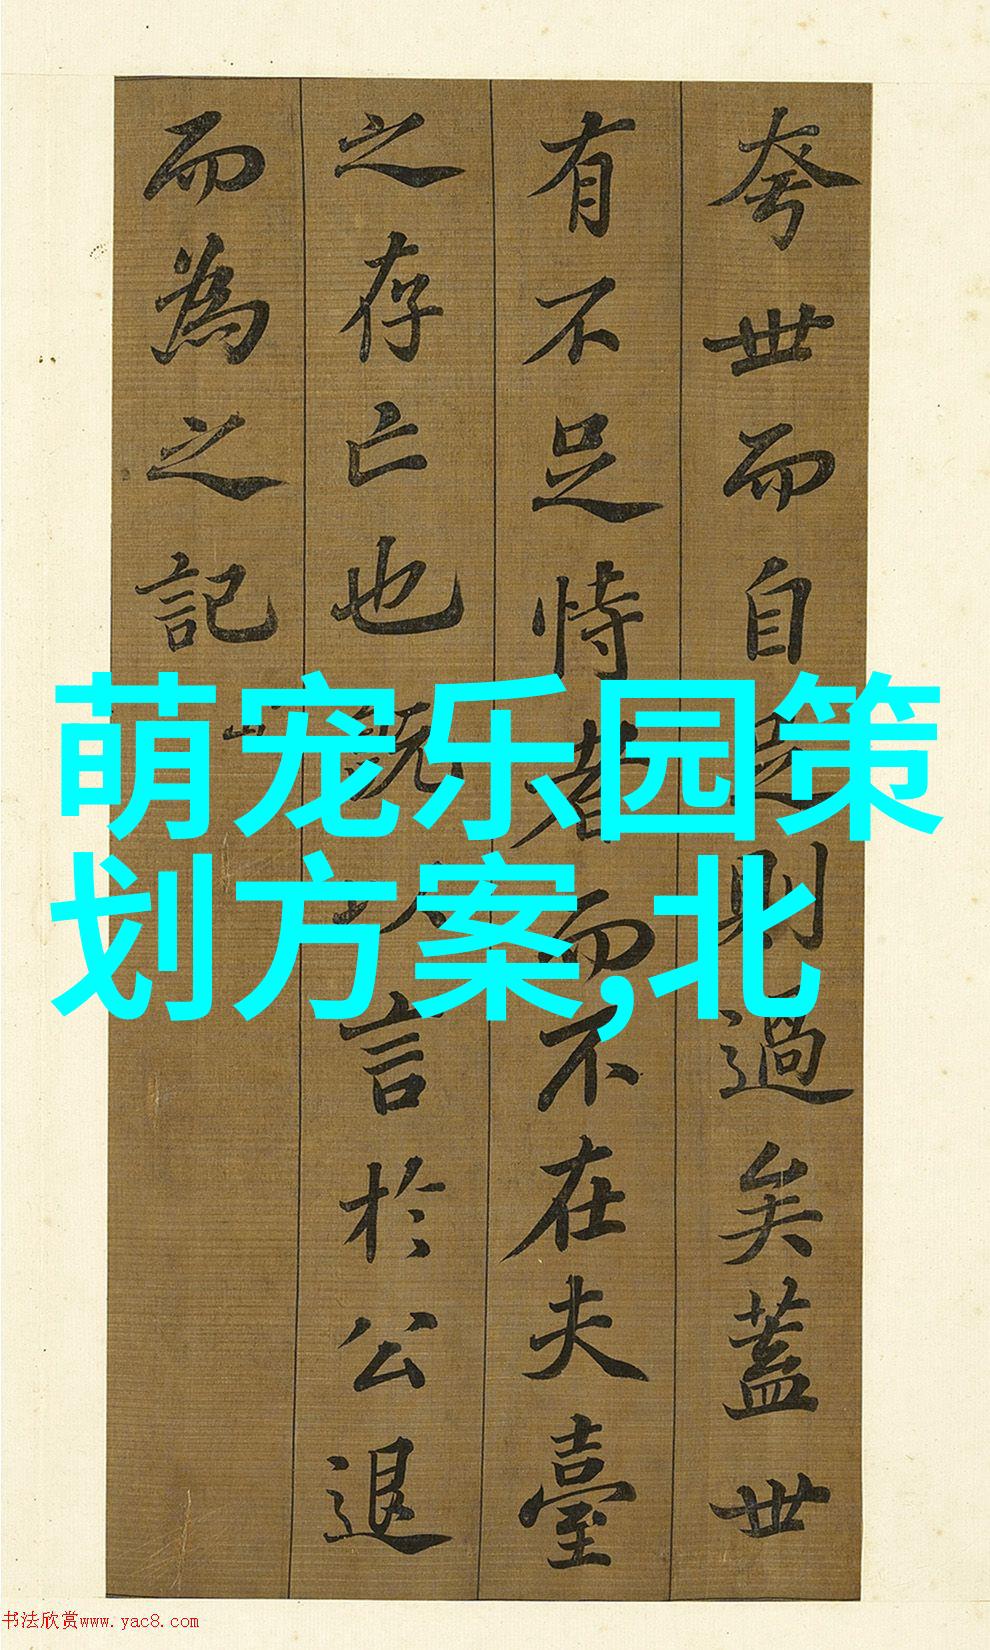 夸世而自足則過矣蓋世
有不足恃者而不在夫臺
之存亡也既以言於公退
而為之記
萌宠乐园策
划方案,北
书法欣赏www.yac8.com